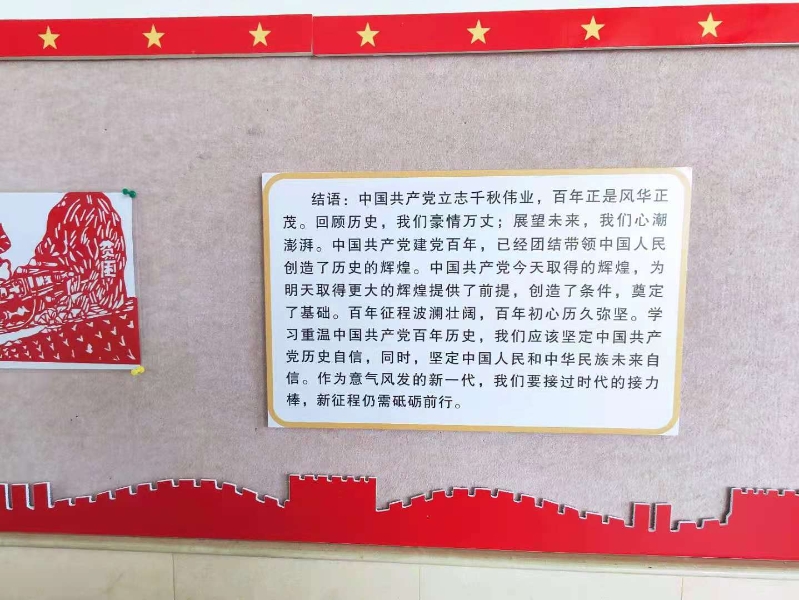 贫困
结语：中国共产党立志千秋伟业，百年正是风华正
茂。回顾历史，我们豪情万丈；展望未来，我们心潮
澎湃。中国共产党建党百年，已经团结带领中国人民
创造了历史的辉煌。中国共产党今天取得的辉煌，为
明天取得更大的辉煌提供了前提，创造了条件，奠定
了基础。百年征程波澜壮阔，百年初心历久弥坚。学
习重温中国共产党百年历史，我们应该坚定中国共产
党历史自信，同时，坚定中国人民和中华民族未来自
信。作为意气风发的新一代，我们要接过时代的接力
棒，新征程仍需砥砺前行。